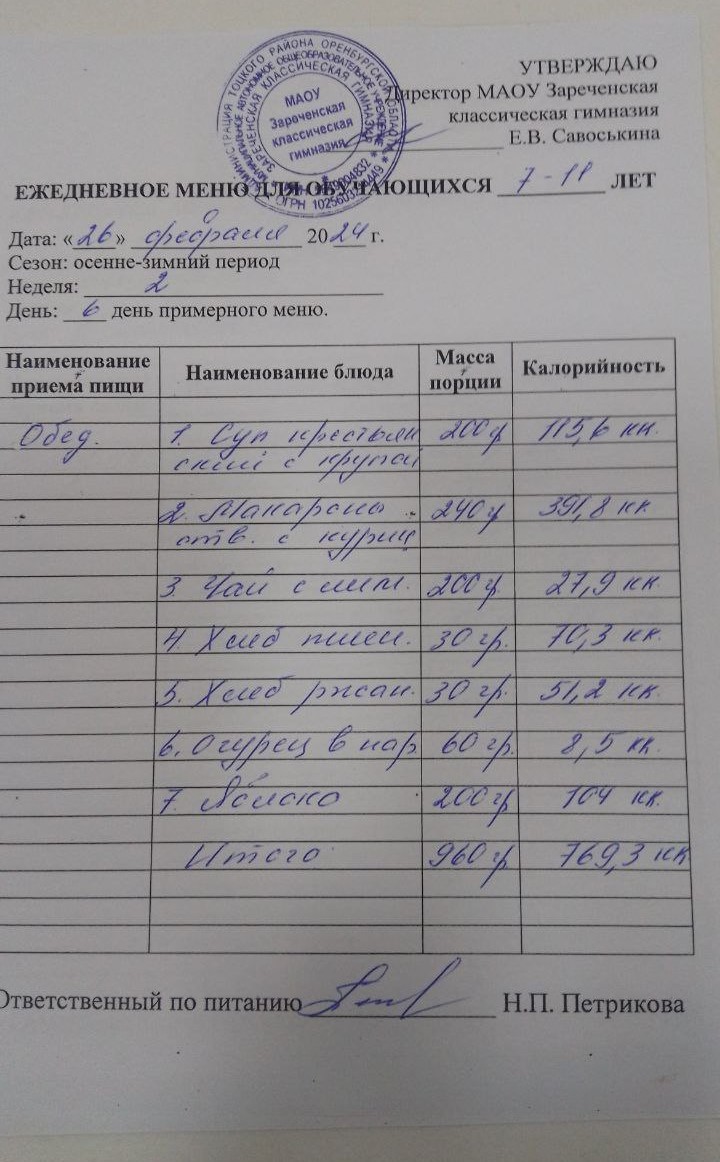 УТВЕРЖДАЮ
Директор МАОУ Зареченская
классическая гимназия
Е.В. Савоськина
МАОУ
Зареченская
классическая
гимназия
ЕЖЕДНЕВНОЕ МЕНЮ ДЛЯ ОБУЧАЮЩИХСЯ 7-11 ЛЕТ
Дата: «26» февраля 2024 г.
Сезон: осенне-зимний период
Неделя: 2
День: 6 день примерного меню.
Наименование приема пищи Наименование блюда Масса порции Калорийность
Обед. 1. Суп крестьян 200 гр 115,6 кк.
ский с крупой
2. Макароны 240 гр 391,8 кк.
отв. с куриц
3. Чай с лим. 200 гр. 27,9 кк.
4. Хлеб пшен. 30 гр. 70,3 кк.
5. Хлеб ржан. 30 гр. 51,2 кк.
6. Огурец в нар 60 гр. 8,5 кк.
7. Яблоко 200 гр 104 кк.
Итого 960 гр 769,3 кк
Ответственный по питанию Н.П. Петрикова